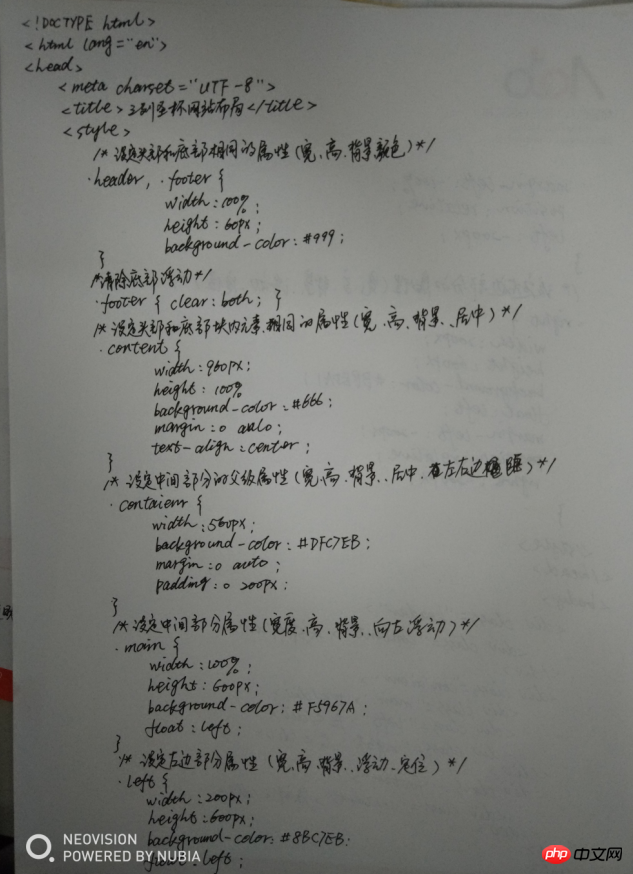 <!DOCTYPE html>
<html lang="en">
<head>
<meta charset="UTF-8">
<title>双飞翼网站布局</title>
<style>
/* 设定头部和底部相同的属性(宽、高、背景颜色)*/
.header, .footer {
width:100%;
height:60px;
background-color:#999;
}
/*清除底部浮动*/
.footer { clear:both; }
/* 设定头部和底部块内元素,相同的属性(宽、高、背景、居中)*/
.content {
width:960px;
height:100%
background-color:#666;
margin:0 auto;
text-align:center;
}
/* 设定中间部分的父级属性(宽、高、背景、居中、左右边距)*/
.contaienr {
width:560px;
background-color:#DFC7EB;
margin:0 auto;
padding:0 200px;
}
/* 设定中间部分属性(宽度、高、背景、向左浮动)*/
.main {
width:100%;
height:600px;
background-color:#F5967A;
float:left;
}
/* 设定左边部分属性(宽、高、背景、浮动、定位)*/
.left {
width:200px;
height:600px;
background-color:#8BC7EB;
float:left;
NEOVISION
POWERED BY NUBIA
php中文网